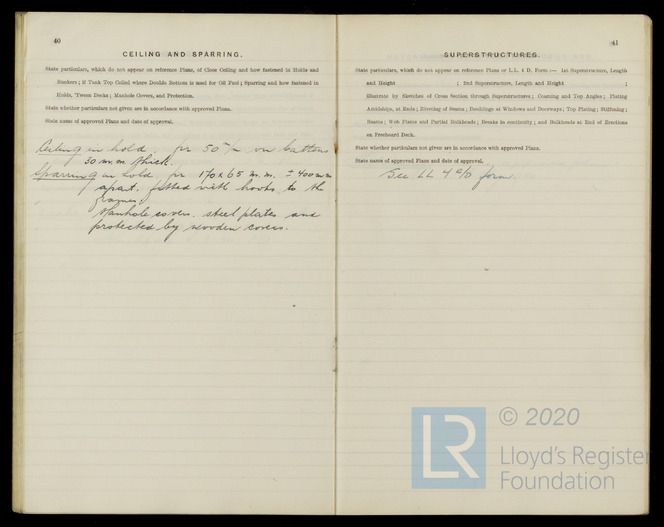 40
CEILING AND SPARRING.
State particulars, which do not appear on reference Plans, of Close Ceiling and how fastened in Holds and
Bunkers; if Tank Top Ceiled where Double Bottom is used for Oil Fuel; Sparring and how fastened in
Holds, 'Tween Decks; Manhole Covers, and Protection.
State whether particulars not given are in accordance with approved Plans.
State name of approved Plans and date of approval,
Ceiling in hold. fir 50 on battens
30 m.m. thick.
Sparring in hold fir 170 x 65 m.m. ± 400 m m
apart. fitted with hooks to the
frames.
Manhole covers. steel plates and
protected by wooden covers.
41
SUPERSTRUCTURES.
State particulars, which do not appear on reference Plans or L.L. 4 D. Form :— 1st Superstructure, Length
and Height ; 2nd Superstructure, Length and Height ;
Illustrate by Sketches of Cross Section through Superstructures; Coaming and Top Angles; Plating
Amidships, at Ends; Riveting of Seams; Doublings at Windows and Doorways; Top Plating; Stiffening;
Beams; Web Plates and Partial Bulkheads; Breaks in continuity; and Bulkheads at End of Erections
on Freeboard Deck.
State whether particulars not given are in accordance with approved Plans.
State name of approved Plans and date of approval,
See LL 4 form
LR
© 2020
Lloyd's Register
Foundation